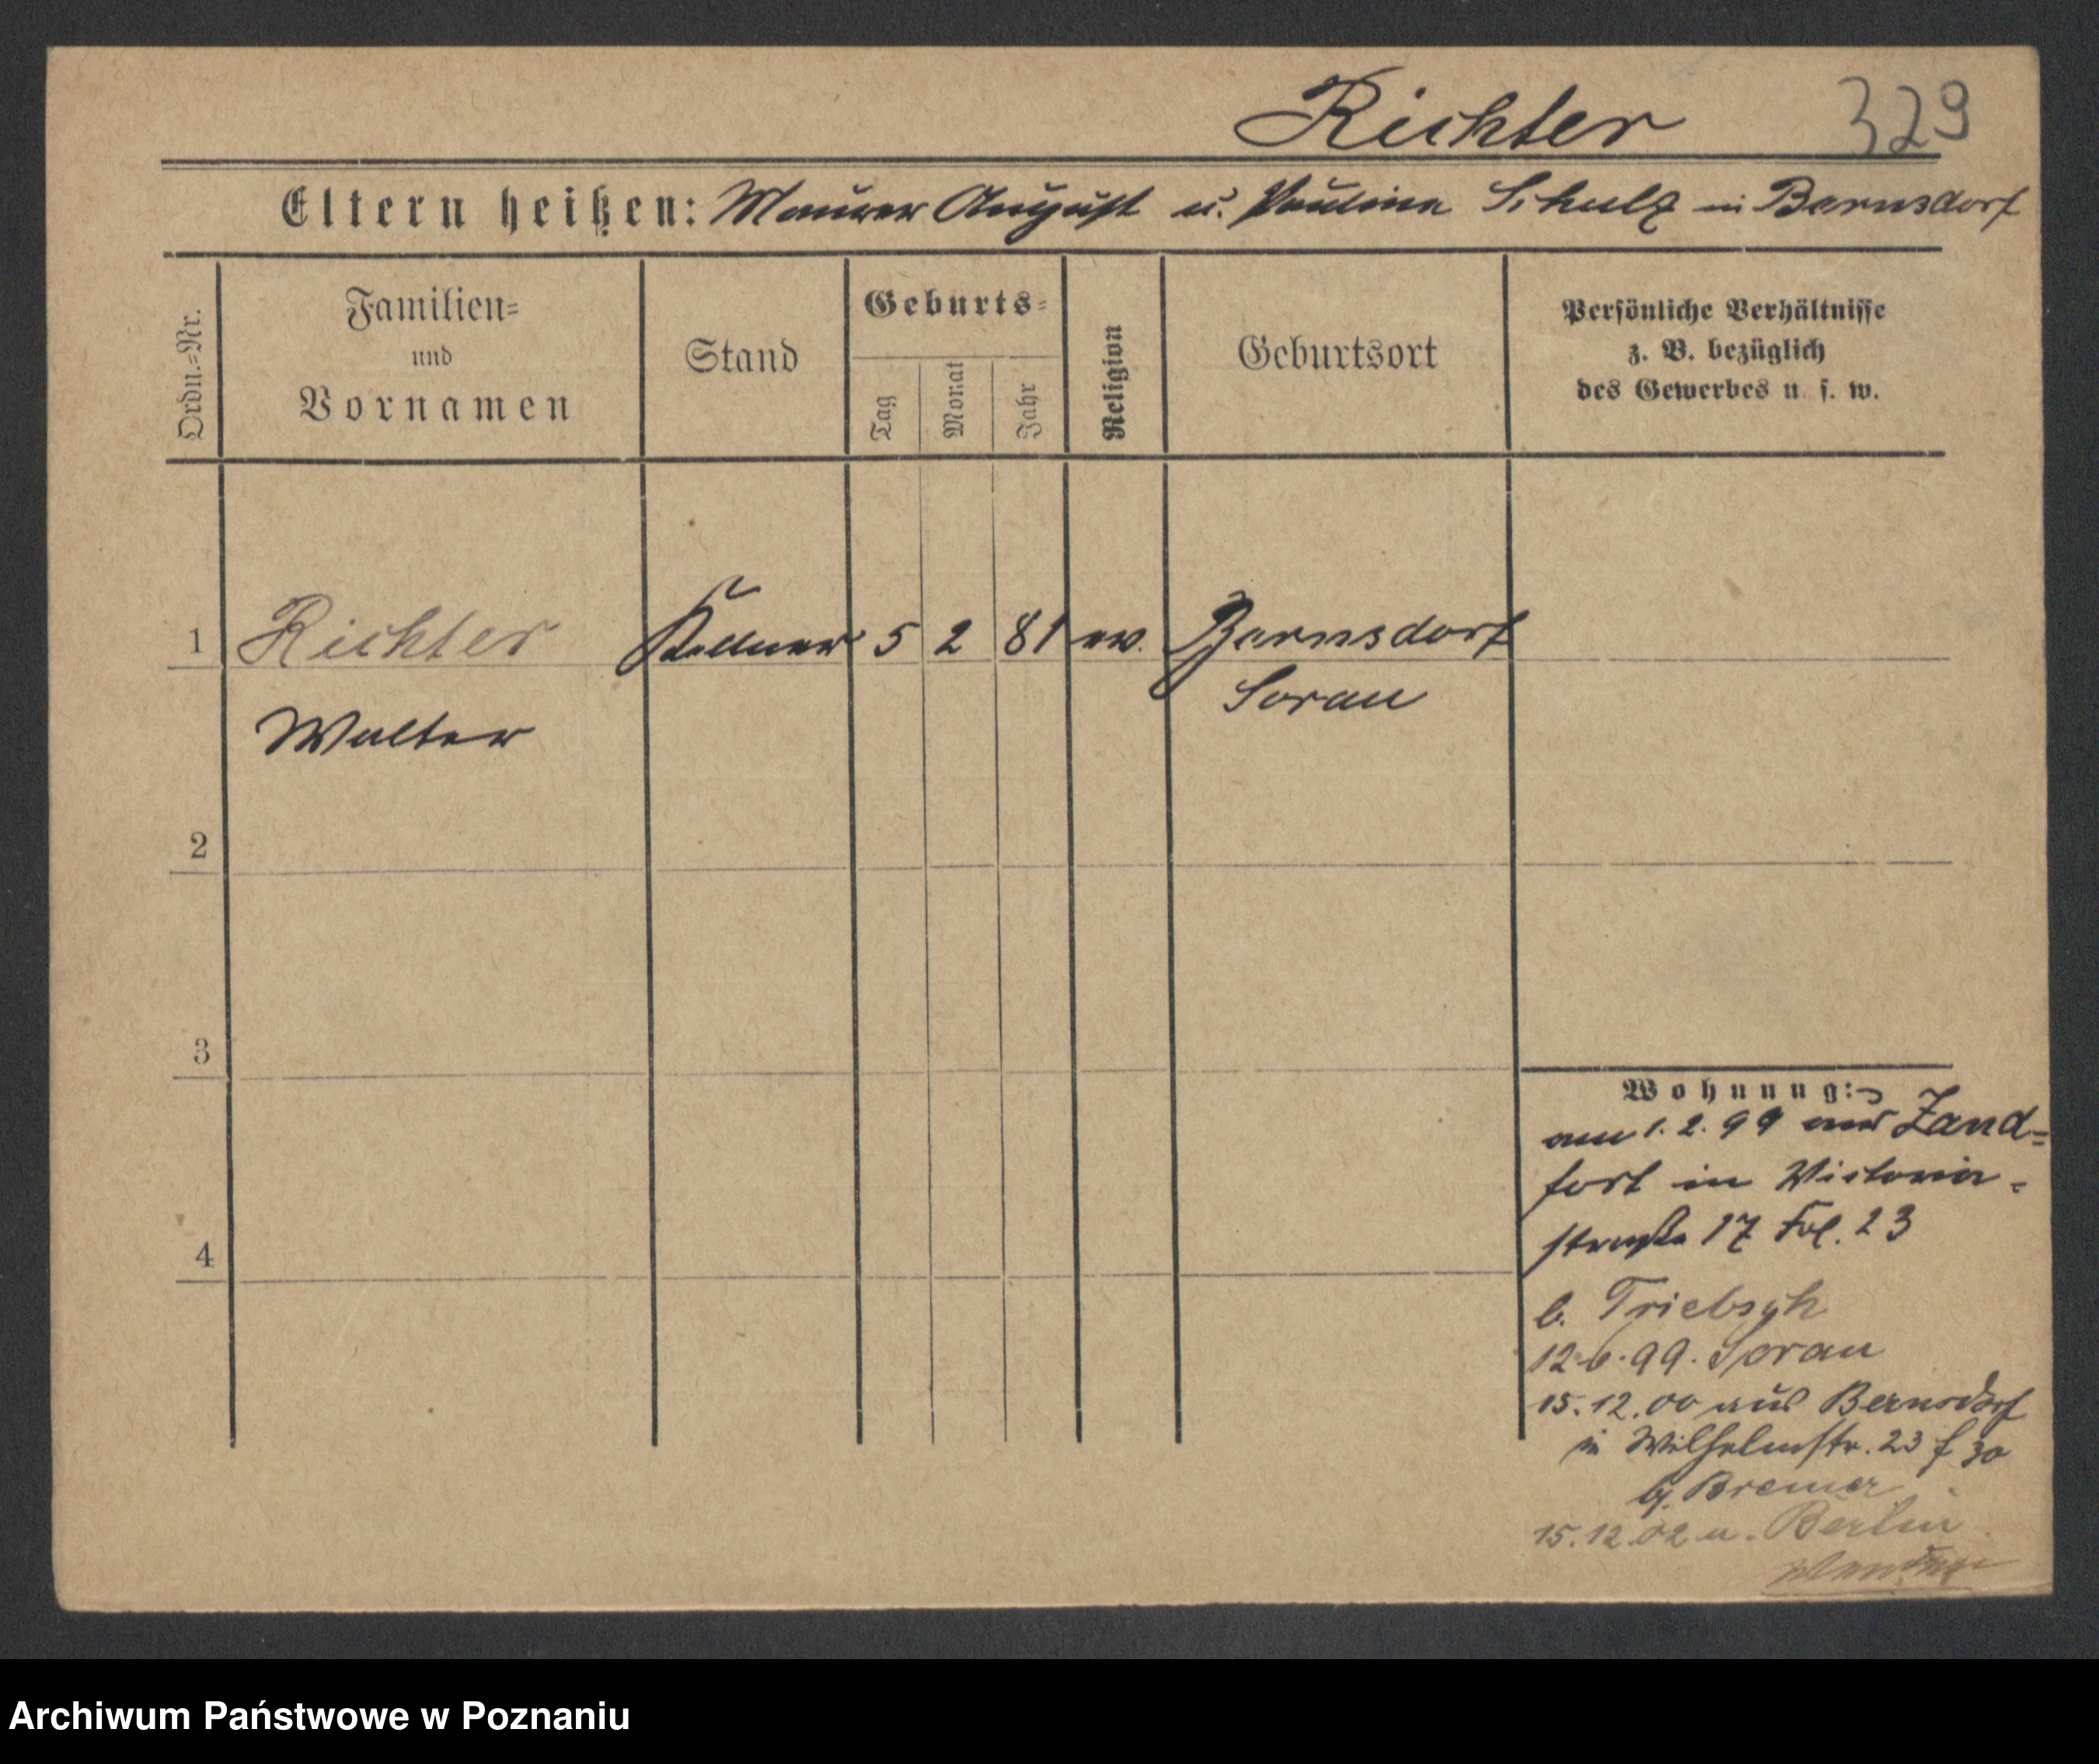 Richter 329
Eltern heißen: Maurer August u. Paulina Schulz in Bernsdorf
Ordn.=Nr.
Familien=
und
Vornamen
Stand
Geburts=
Tag
Monat
Jahr
Religion
Geburtsort
Persönliche Verhältnisse
z. B. bezüglich
des Gewerbes u. s. w.
1 Richter Kellner 5 2 81 ev. Bernsdorf
Sorau
Walter
2
3
4
Wohnung:
am 1. 2. 99 aus Zand=
fort in Victoria=
straße 17 Fol. 23
b.
12.6.99. Sorau
15.12.00 aus Bernsdorf
in Wilhelmstr. 23 f 30
b. Bremer
15.12.02 n. Berlin
Archiwum Państwowe w Poznaniu